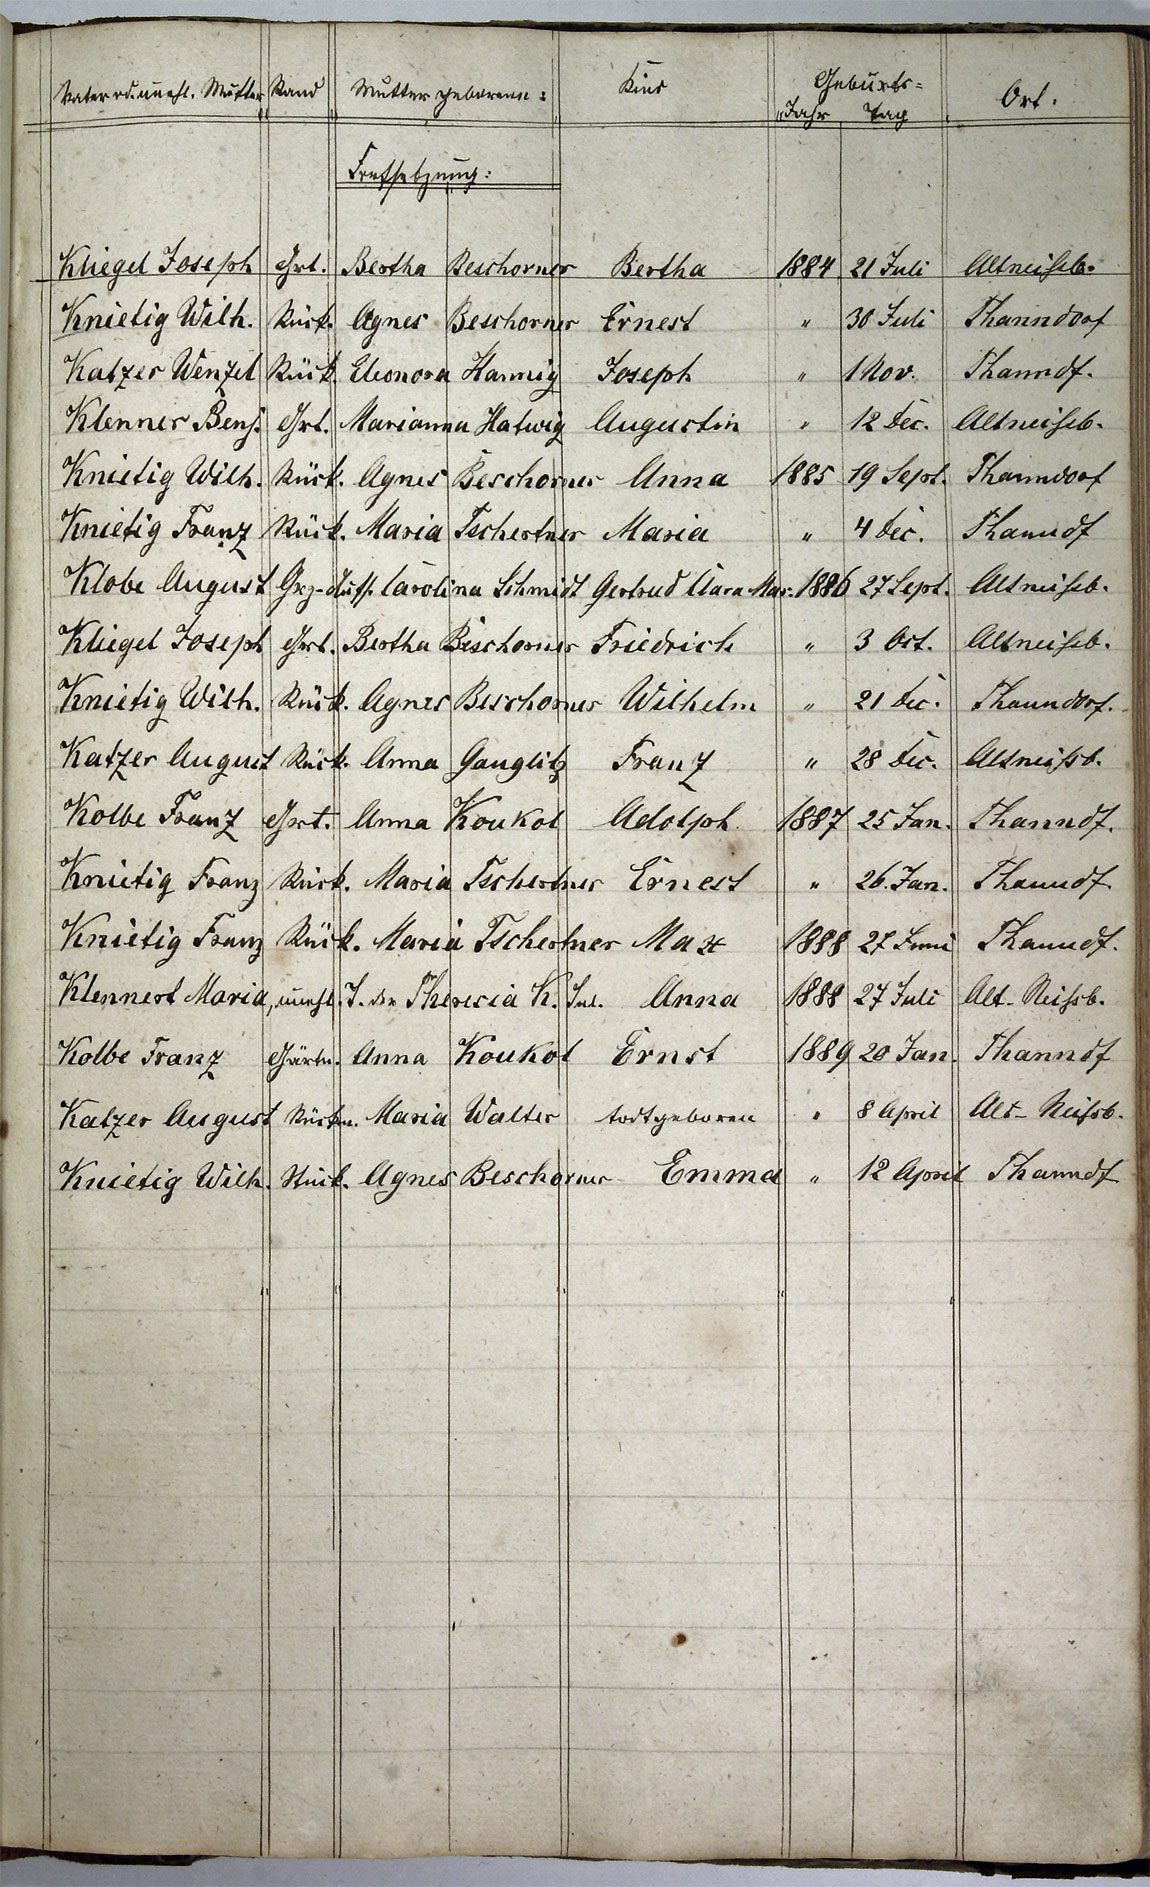 Vater od. unehl. Mutter Stand Mutter geborenn: Kind Geburts= Jahr Tag Ort.
Fortsetzung:
Kliegel Joseph Grt. Bertha Beschorner Bertha 1884 21 Juli Altneissb.
Knietig Wilh. Rück. Agnes Beschorner Ernest " 30 Juli Thanndorf
Katzer Wenzel Rück. Eleonora Hannig Joseph " 1 Nov. Thanndf.
Klenner Benj. Grt. Marianna Hatwig Augustin " 12 Dec. Altneissb.
Knietig Wilh. Rück. Agnes Beschorner Anna 1885 19 Sept. Thanndorf
Knietig Franz Rück. Maria Tschertner Maria " 4 Dec. Thanndf
Klobe August Grz-Auss. Carolina Schmidt Gertrud Clara Mar. 1886 27 Sept. Altneissb.
Kliegel Joseph Grt. Bertha Beschorner Friedrich " 3 Oct. Altneissb.
Knietig Wilh. Rück. Agnes Beschorner Wilhelm " 21 Dec. Thanndorf.
Katzer August Rück. Anna Ganglitz Franz " 28 Dec. Altneissb.
Kolbe Franz Grt. Anna Koukol Adolph 1887 25 Jan. Thanndf.
Knietig Franz Rück. Maria Tschertner Ernest " 26. Jan. Thanndf.
Knietig Franz Rück. Maria Tschertner Max 1888 27 Juni Thanndf.
Klennert Maria, unehl. T. der Theresia K. Inl. Anna 1888 27 Juli Alt-Neissb.
Kolbe Franz Gärtn. Anna Koukol Ernst 1889 20 Jan. Thanndf
Katzer August Rückn. Maria Walter todtgeboren " 8 April Alt-Neissb.
Knietig Wilh. Stück. Agnes Beschorner Emma " 12 April Thanndf